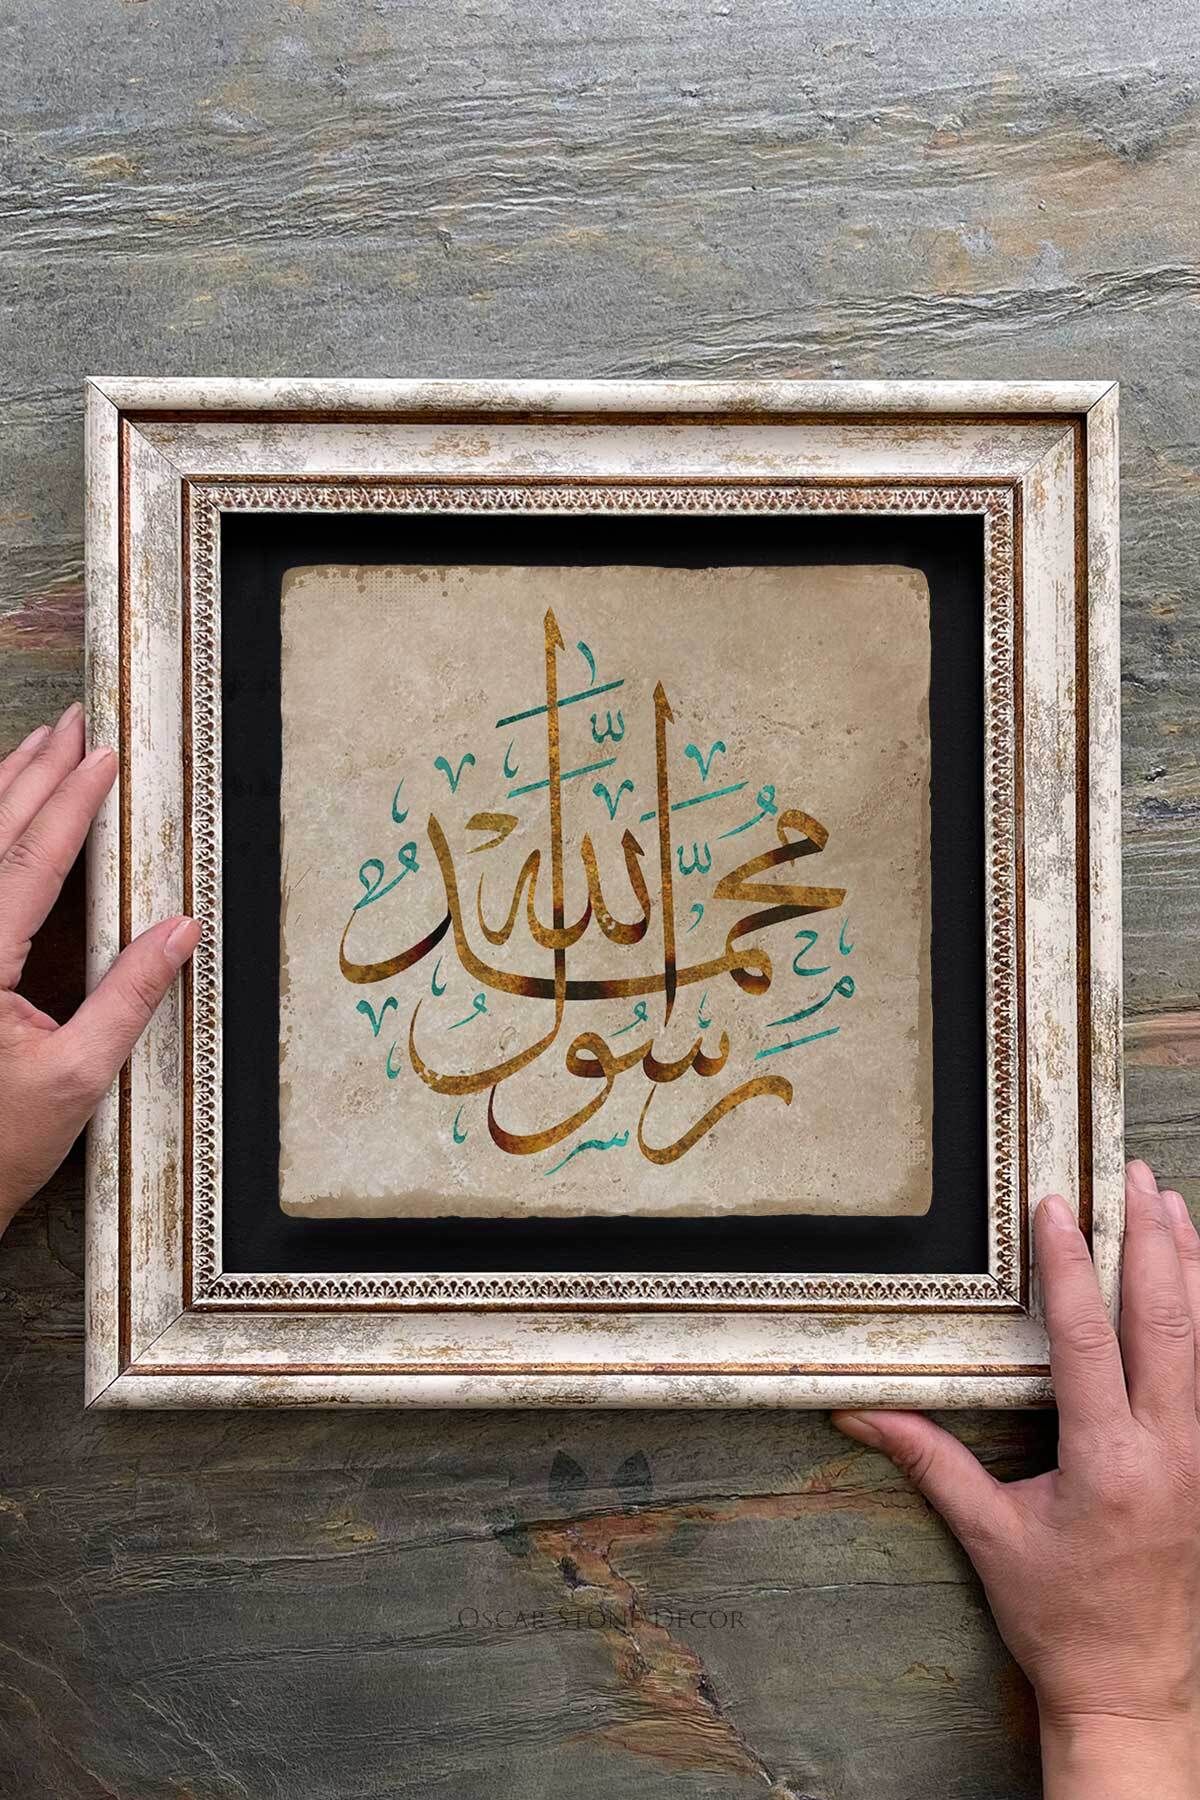 محمد رسول الله
OSCAR STONE DECOR